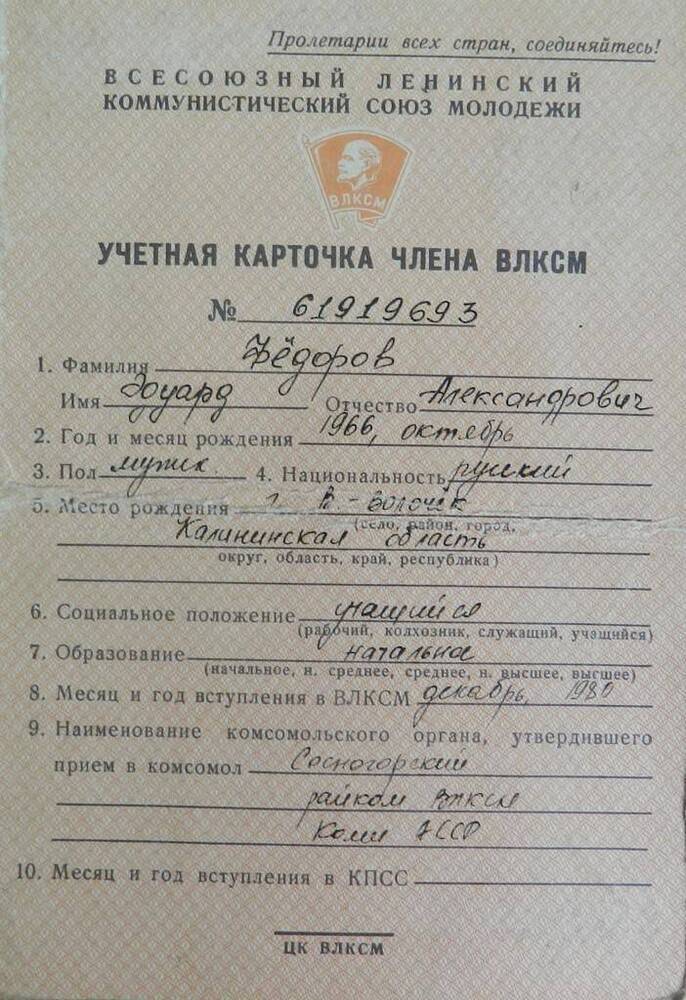 Пролетарии всех стран, соединяйтесь!
ВСЕСОЮЗНЫЙ ЛЕНИНСКИЙ
КОММУНИСТИЧЕСКИЙ СОЮЗ МОЛОДЕЖИ
ВЛКСМ
УЧЕТНАЯ КАРТОЧКА ЧЛЕНА ВЛКСМ
№ 61919693
1. Фамилия Фёдоров
Имя Эдуард Отчество Александрович
2. Год и месяц рождения 1966, октябрь
3. Пол мужск. 4. Национальность русский
5. Место рождения г. В.-Волочёк
(село, район, город,
Калининская область
округ, область, край, республика)
6. Социальное положение учащийся
(рабочий, колхозник, служащий, учащийся)
7. Образование начальное
(начальное, н. среднее, среднее, н. высшее, высшее)
8. Месяц и год вступления в ВЛКСМ декабрь, 1980
9. Наименование комсомольского органа, утвердившего
прием в комсомол Сосногорский
райком ВЛКСМ
Коми АССР
10. Месяц и год вступления в КПСС
ЦК ВЛКСМ